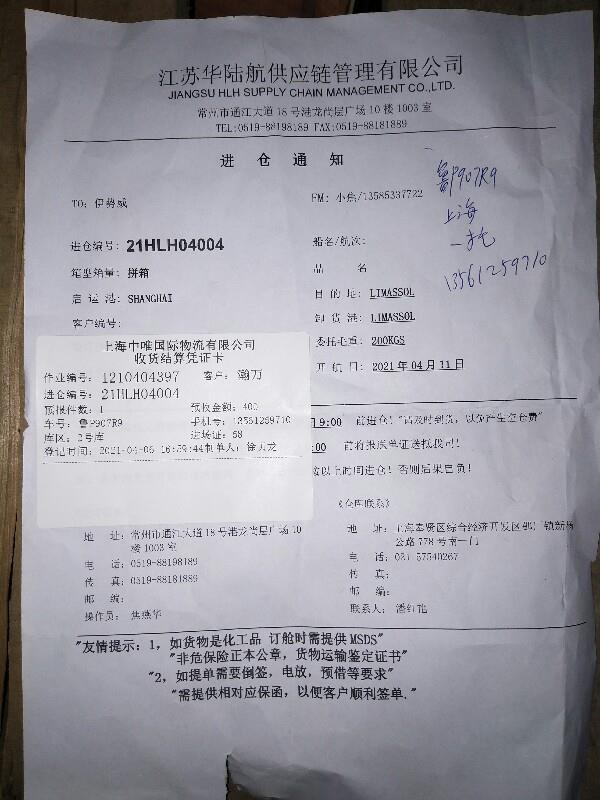 江苏华陆航供应链管理有限公司
JIANGSU HLH SUPPLY CHAIN MANAGEMENT CO.,LTD.
常州市通江大道18号港龙尚层广场10楼1003室
TEL:0519-88198189 FAX:0519-88181889
进仓通知
鲁P907R9
上海
一托
13561259710
TO: 伊势威
FM: 小焦/13585337722
进仓编号: 21HLH04004
船名/航次:
箱型箱量: 拼箱
品 名
启运港: SHANGHAI
目的地: LIMASSOL
卸货港: LIMASSOL
客户编号:
委托毛重: 200KGS
开航日: 2021年04月11日
上海中唯国际物流有限公司
收货结算凭证卡
作业编号: 1210404397 客户: 瀚万
进仓编号: 21HLH04004
预报件数: 1 预收金额: 400
车号: 鲁P907R9 手机号: 13561259710
库区: 2号库 进场证: 58
登记时间: 2021-04-06 16:59:44制单人: 徐天龙
日9:00 前进仓! "请及时到货, 以免产生怠仓费"
:00 前将报版单证送抵我司!!
按以上时间进仓! 否则后果自负!
《仓库联系》
地 址: 常州市通江大道18号港龙尚层广场10
楼1003室
电 话: 0519-88198189
传 真: 0519-88181889
邮 编:
操作员: 焦燕华
地 址: 上海奉贤区综合经济开发区 镇新杨
公路778号南一门
电 话: 021-57540267
传 真:
邮 编:
联系人: 潘红艳
"友情提示: 1, 如货物是化工品 订舱时需提供MSDS"
"非危保险正本公章, 货物运输鉴定证书"
"2, 如提单需要倒签, 电放, 预借等要求"
"需提供相对应保函, 以便客户顺利签单."